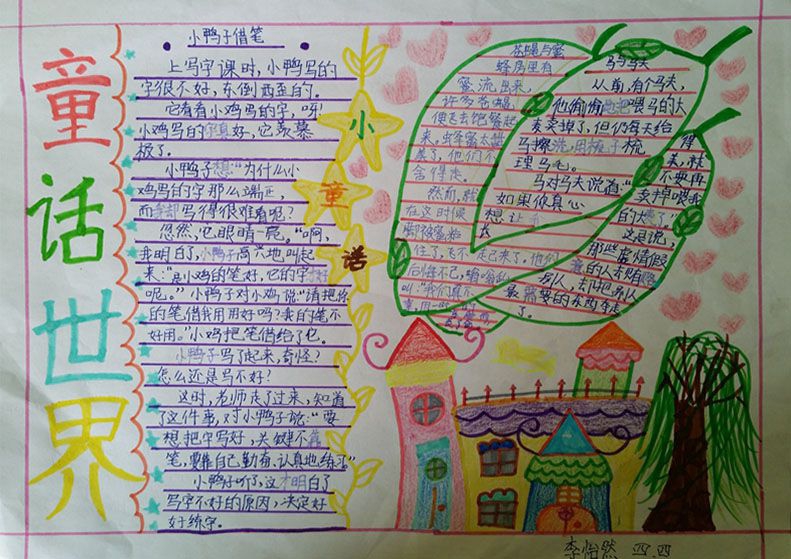 童话世界
小鸭子借笔
上写字课时，小鸭写的
字很不好，东倒西歪的。
它看看小鸡写的字，呀！
小鸡写的字真好，它羡慕
极了。
小鸭子想：“为什么小
鸡写的字那么端正，
而我却写得很难看呢？
忽然，它眼睛一亮。“啊，
我明白了，小鸭子高兴地叫起
来：“是小鸡的笔好，它的字才好
呢。”小鸭子对小鸡说：“请把你
的笔借我用用好吗？我的笔不
好用。”小鸡把笔借给了它。
小鸭子写了起来，奇怪？
怎么还是写不好？
这时，老师走了过来，知道
了这件事，对小鸭子说：“要
想把字写好，关键不靠
笔，要靠自己勤奋、认真地练习。”
小鸭子听了，这才明白了
写字不好的原因，决定好
好练字。
小童话
苍蝇与蜜
蜂房里有
蜜流出来，
许多苍蝇
便飞去饱餐起
来，蜂蜜太甜
美了，他们不
舍得走。
然而，就
在这时候
脚被蜜粘
住了，飞不起来了。他们
后悔不已，嗡嗡乱
叫：“我们真不
马与马夫
从前，有个马夫，
他偷偷地把喂马的大
麦卖掉了，但仍每天给
马擦洗，用梳子梳
理马毛。
马对马夫说道：“
如果你真心
想让我
长
得
美，就
不要再
卖掉喂我
的大麦了。”
这是说，
那些虚情假
意的人
别人，却把别人
最需要的东西夺走
了。
李怡然 四.四